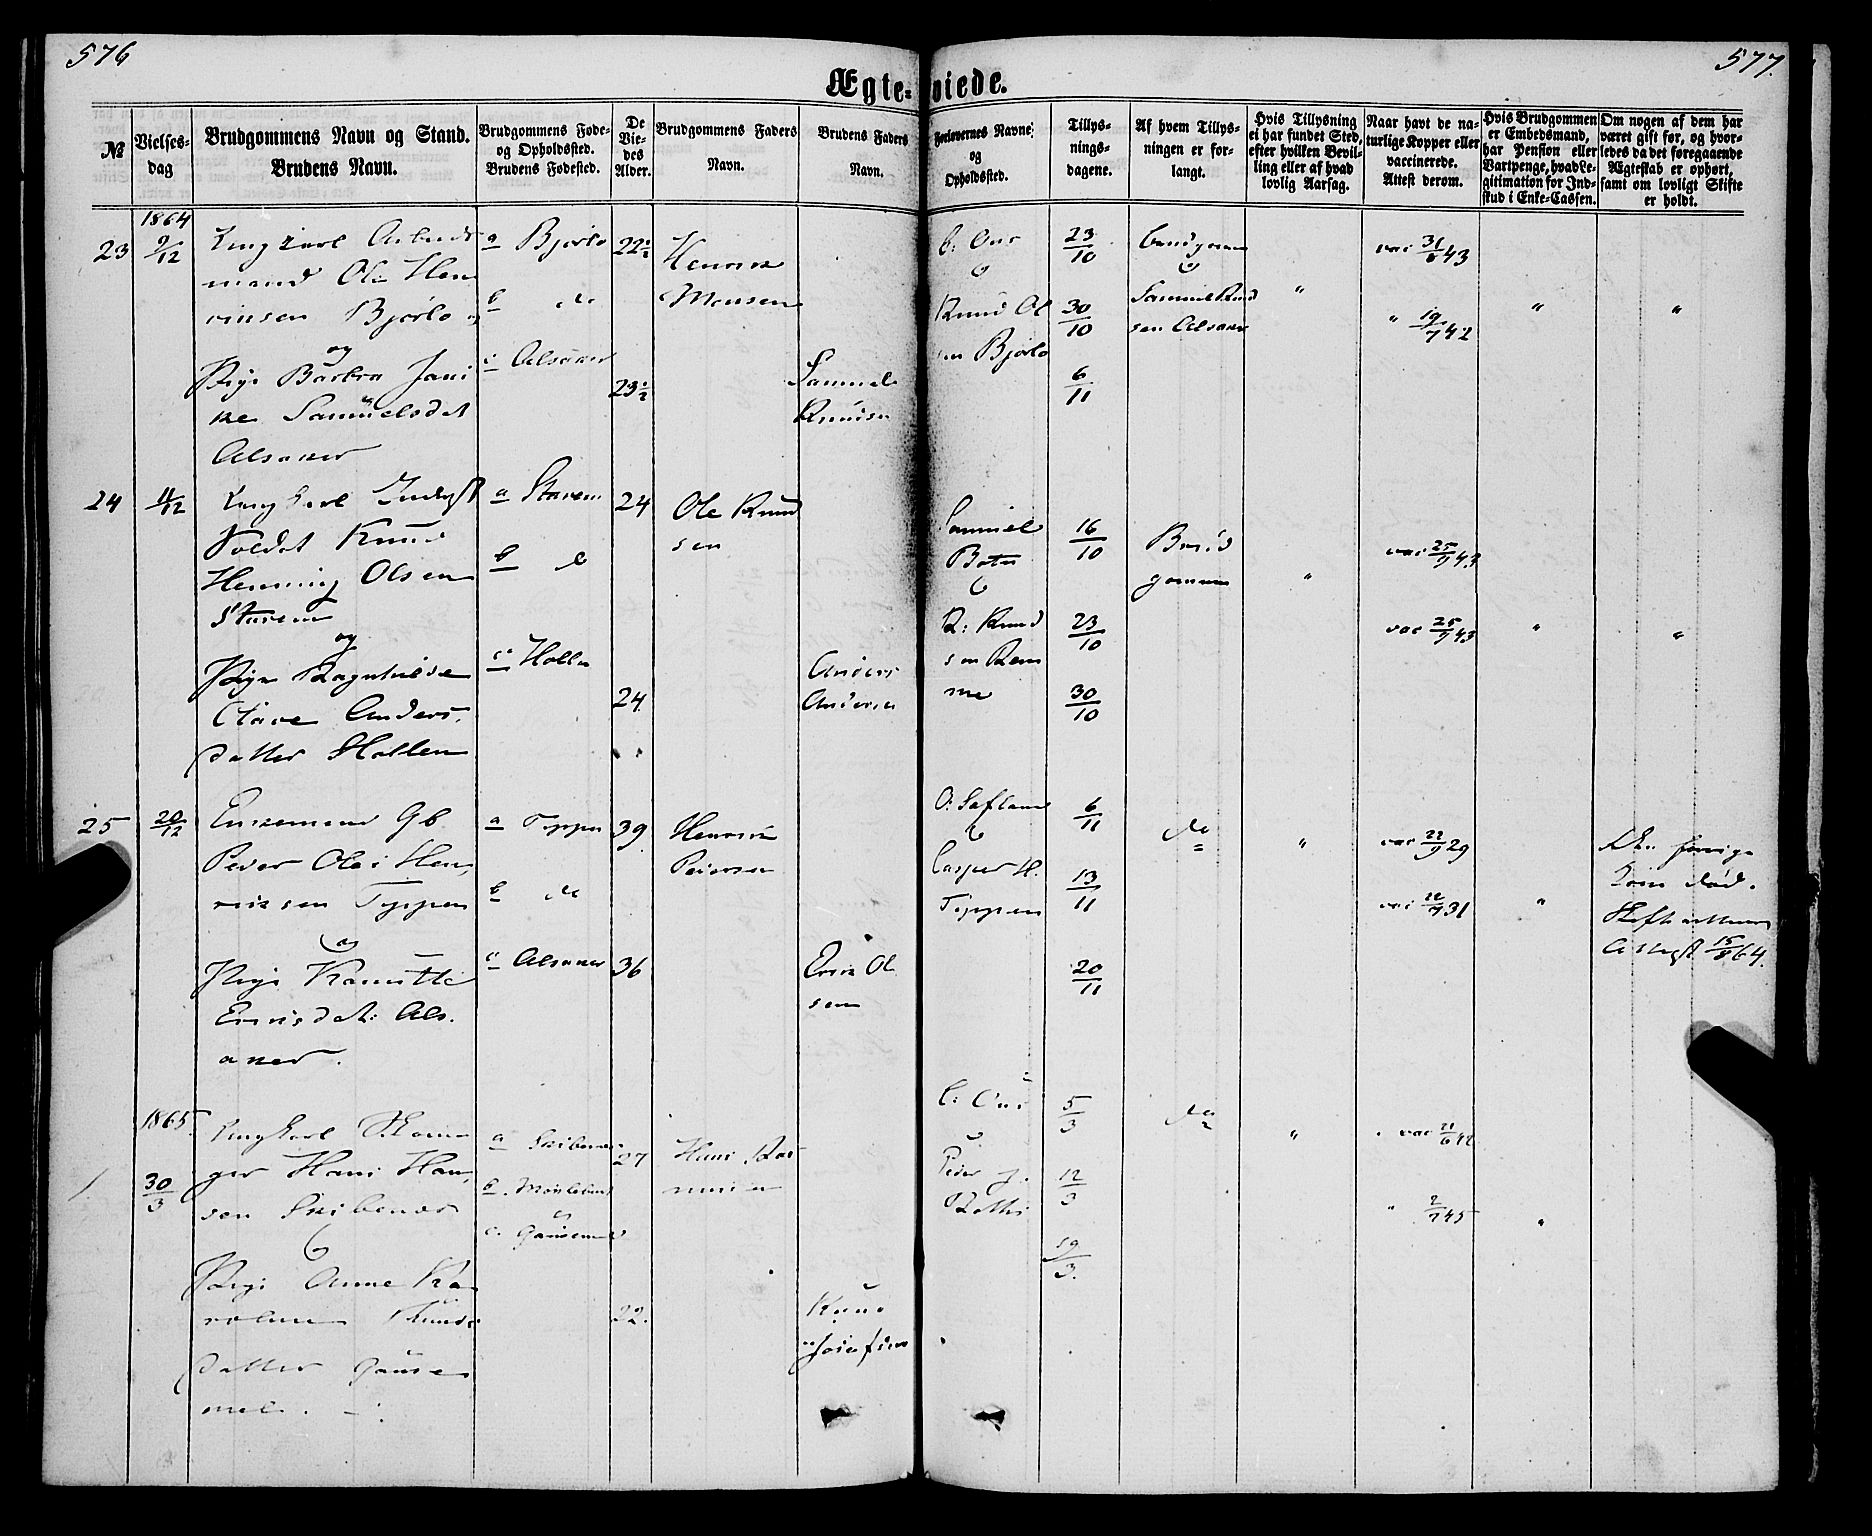 576
577.
Ægte-viede.
№
Vielses-
dag
Brudgommens Navn og Stand.
Brudens Navn.
Brudgommens Føde-
og Opholdssted.
Brudens Fødested.
De
Vie-
des
Alder.
Brudgommens Faders
Navn.
Brudens Faders
Navn.
Forlovernes Navne
og
Opholdssted.
Tillys-
nings-
dagene.
Af hvem Tillys-
ningen er for-
langt.
Hvis Tillysning
ei har fundet Sted,
efter hvilken Bevil-
ling eller af hvad
lovlig Aarsag.
Naar havt de na-
turlige Kopper eller
vaccinerede.
Attest derom.
Hvis Brudgommen
er Embedsmand,
har Pension eller
Vartpenge, hvad Le-
gitimation for Ind-
skud i Enke-Cassen.
Om nogen af dem har
været gift før, og hvor-
ledes da det foregaaende
Ægteskab er ophørt,
samt om lovligt Skifte
er holdt.
1864
23
9/12
Ungkarl Arbeids
mand Ole Hen
riksen Bjørlo
og
Pige Barbra Jani
ke Samuelsdat
Alsaker
a Bjørlo
b do
c Alsaker
22½
23½
Henrik
Monsen
Samuel
Knudsen
Knud Ol
sen Bjørlo
23/10
30/10
6/11
Brudgommen
Samuel Knud
sen Alsaker
"
vac 31/8 43
" 19/7 42
"
"
24
11/12
Ungkarl
Soldat Knud
Henning Olsen
Starem
og
Pige Ragnhilde
Olave Anders
datter Hollen
a Starem
b do
c Hollen
24
24.
Ole Knud
sen
Anders
Andersen
Samuel
R: Knud
sen
16/10
23/10
30/10
Brud
gommen
"
vac 25/9 43
vac 25/9 43
"
"
25
20/12
Enkemand Gb
Peder Olai Hen
riksen Toppen
og
Pige Kanutte
Eriksdat: Als
aker.
a Toppen
b do
c Alsaker
39
36
Henrik
Pedersen
Erik Ol
sen
Casper H.
Toppen
6/11
13/11
20/11
do
"
vac 22/9 29
vac 22/7 31
"
forrige
Kone død.
Attest 15/8 64.
1865.
1.
30/3
Ungkarl
Hans Han
sen Skibenes
Pige Anne Ka
roline Knuds
datter Gause
mel.
a Skibenes
b.
c. Gausemel
27
22.
Hans Ras
mussen
Knud
Josefsen
Peder J.
5/3
12/3
19/3.
do
"
vac 21/6 42
" 2/7 45
"